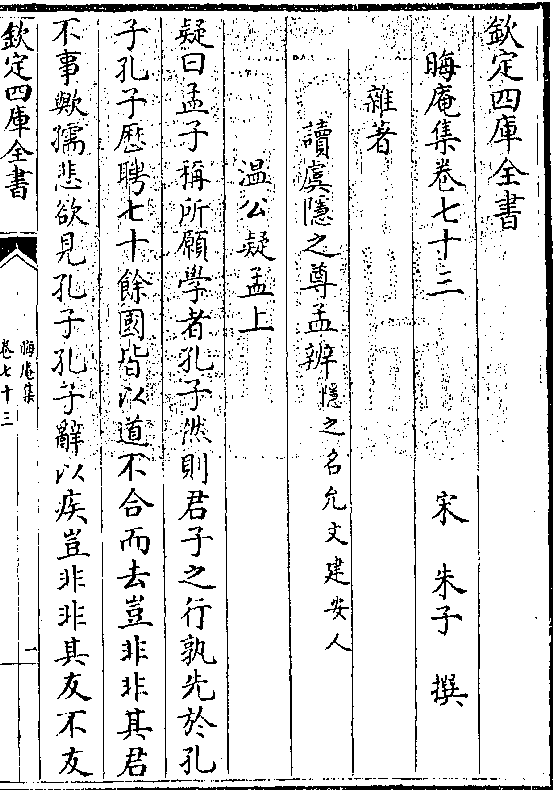 欽定四庫全書
晦庵集卷七十三
宋 朱子 撰
雜著
讀虞隱之尊孟辨隱之名允文建安人
温公疑孟上
疑曰孟子稱所願學者孔子然則君子之行孰先於孔
子孔子歷聘七十餘國皆以道不合而去豈非非其君
不事歟孺悲欲見孔子孔子辭以疾豈非非其友不友
欽定四庫全書
晦庵集
卷七十三
一